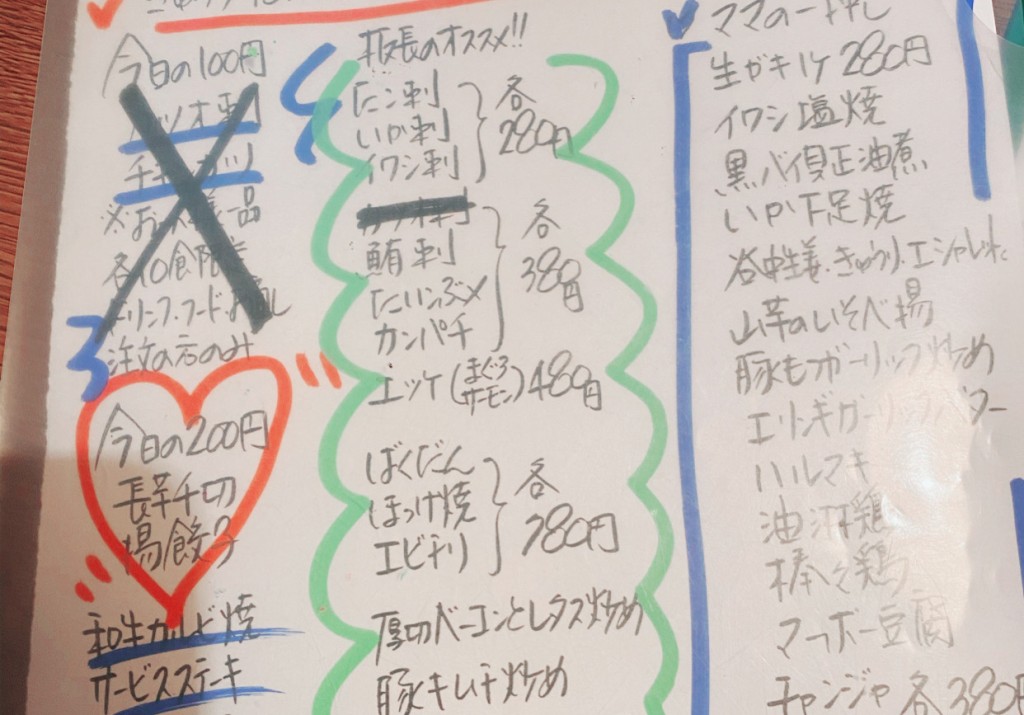 今日の100円
カツオ刺
チキンカツ
※お一人様一品
各10食限定
ドリンク.フード.
注文の方のみ
今日の200円
長芋千切
揚餃子
和牛カルビ焼
サービスステーキ
板長のオススメ!!
たこ刺
いか刺
イワシ刺
各
280円
鮪刺
たいこぶ〆
カンパチ
各
380円
ユッケ(まぐろ サーモン)480円
ばくだん
ほっけ焼
エビチリ
各
780円
厚切ベーコンとレタス炒め
豚キムチ炒め
ママの一押し
生ガキ1ケ 280円
イワシ塩焼
黒バイ貝正油煮
いか下足焼
谷中生姜.きゅうり.エシャレット
山芋のいそべ揚
豚もつガーリック炒め
エリンギガーリックバター
ハルマキ
油淋鶏
棒々鶏
マーボー豆腐
チャンジャ 各380円